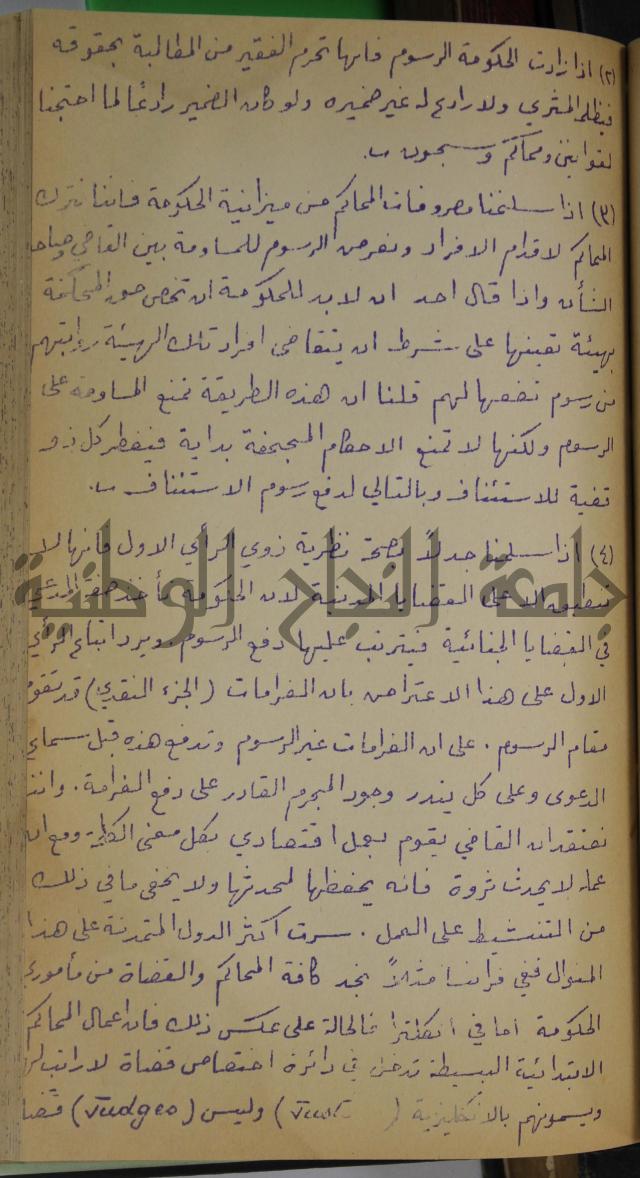 (٢) اذا زادت الحكومة الرسوم فانها تحرم الفقير من المطالبة بحقوقه
فيظلمه المثري ولا رادع له غير ضميره ولو كان الضمير رادعًا لما احتجنا
لقوانين ومحاكم وسجون .
(٣) اذا سلخنا مصروفات المحاكم من ميزانية الحكومة فاننا نترك
المحاكم لاقدام الافراد ونعرض الرسوم للمساومة بين القاضي وصاحب
الشأن واذا قال احد ان لابد للحكومة ان تخص حق المحاكمة
بهيئة تعينها على شرط ان يتقاضى افراد تلك الهيئة رواتبهم
من رسوم تضعها لهم قلنا ان هذه الطريقة تمنع المساومة على
الرسوم ولكنها لا تمنع الاحكام المجحفة بداية فيضطر كل ذو
قضية للاستئناف وبالتالي لدفع رسوم الاستئناف .
(٤) اذا سلمنا جدلاً بصحة نظرية ذوي الرأي الاول فانها لا
تنطبق الا على القضايا المدنية لان الحكومة تأخذ صفة المدعي
في القضايا الجنائية فيترتب عليها دفع الرسوم . ويرد اتباع الرأي
الاول على هذا الاعتراض بان الغرامات (الجزء النقدي) قد تقوم
مقام الرسوم . على ان الغرامات غير الرسوم وتدفع هذه قبل سماع
الدعوى وعلى كل يندر وجود المجرم القادر على دفع الغرامة .
نعتقد ان القاضي يقوم بعمل اقتصادي بكل معنى الكلمة ومع ان
عمله لا يحدث ثروة فانه يحفظها لمحدثها ولا يخفى ما في ذلك
من التنشيط على العمل . سرت اكثر الدول المتمدنة على هذا
المنوال ففي فرانسا مثلاً نجد كافة المحاكم والقضاة من مأموري
الحكومة اما في انكلترا فالحالة على عكس ذلك فان اعمال المحاكم
الابتدائية البسيطة تدخل في دائرة اختصاص قضاة لا راتب لهم
ويسمونهم بالانكليزية ( ) وليس (Judges)
جامعة النجاح الوطنية